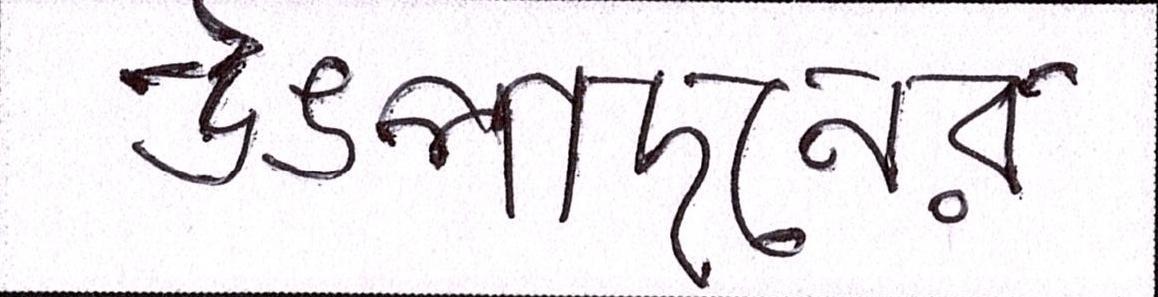 উৎপাদনের